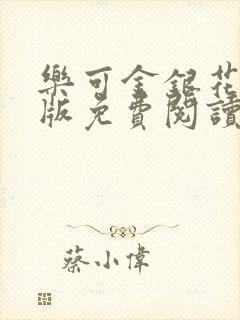 樂可金銀花
版免費閱讀
蔡小偉